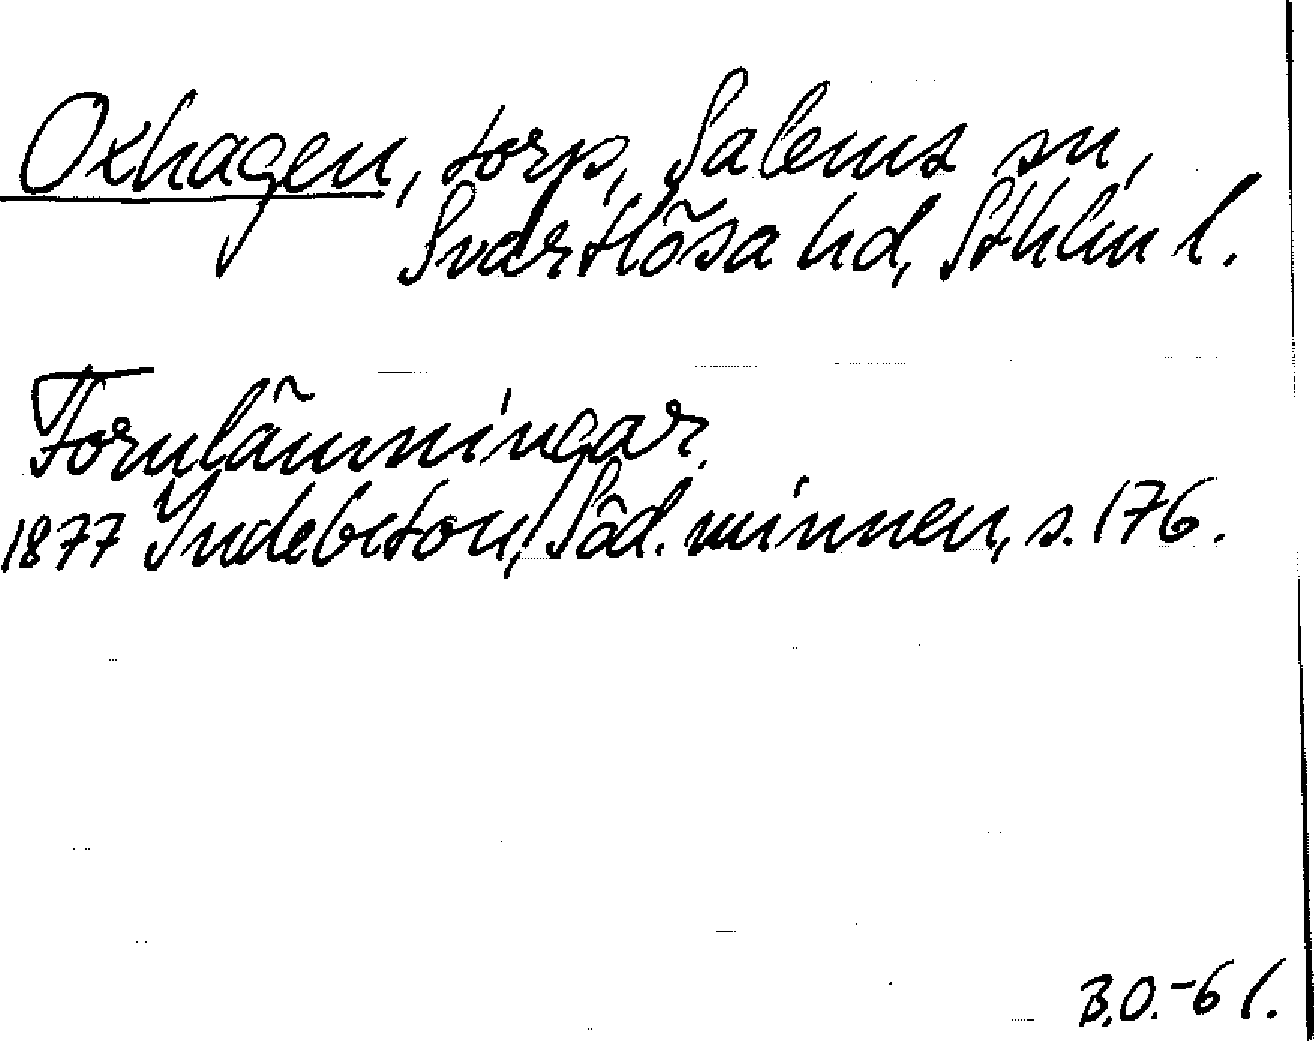 Oxhagen, torp, Salems sn,
Svartlösa hd, Sthlm l.
Fornlämningar.
1877 Indebetou, Söd. minnen, s. 176.
B.O.-61.